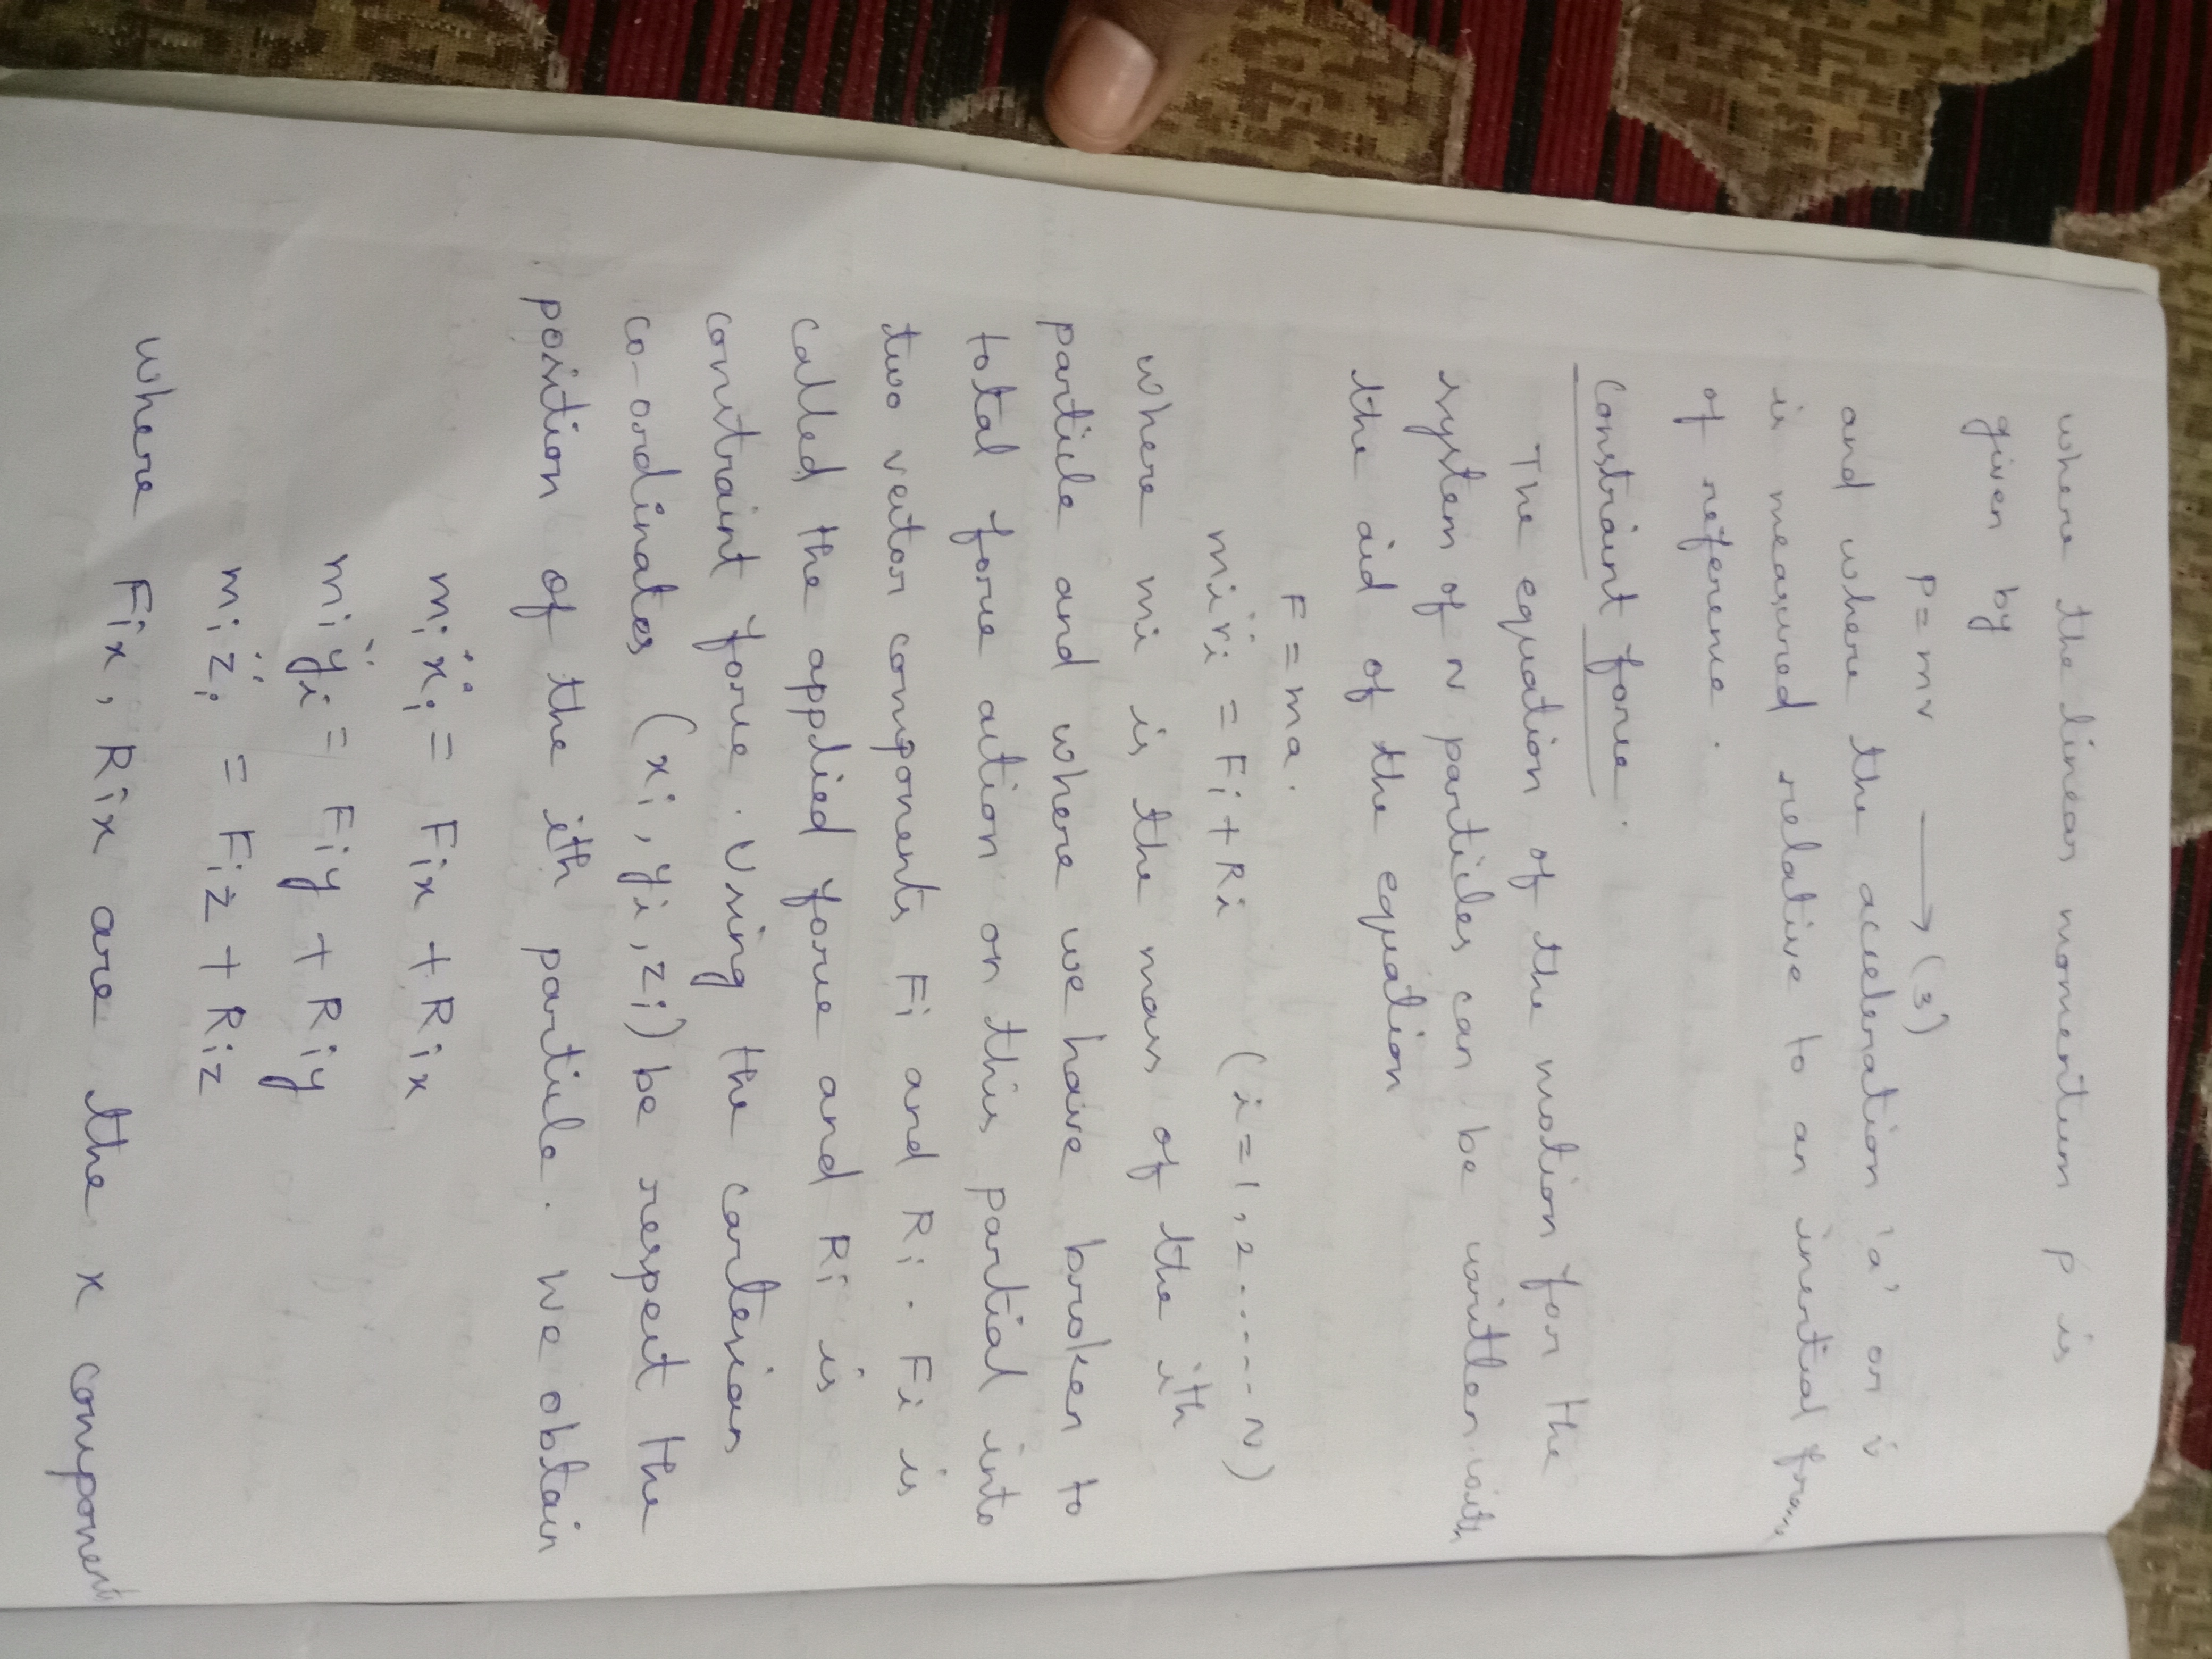 where the linear momentum p is
given by
P = mv ⟶ (3)
and where the acceleration 'a' or v̇
is measured relative to an inertial fram
of reference.
Constraint force.
The equation of the motion for the
system of N particles can be written with
the aid of the equation
F = ma.
mi r̈i = Fi + Ri (i = 1, 2 ..... N)
where mi is the mass of the ith
particle and where we have broken to
total force action on this partial into
two vector components Fi and Ri. Fi is
called the applied force and Ri is
constraint force. Using the cartesian
co-ordinates (xi, yi, zi) be respect the
position of the ith particle. We obtain
mi ẍi = Fix + Rix
mi ÿi = Fiy + Riy
mi z̈i = Fiz + Riz
where Fix, Rix are the x component